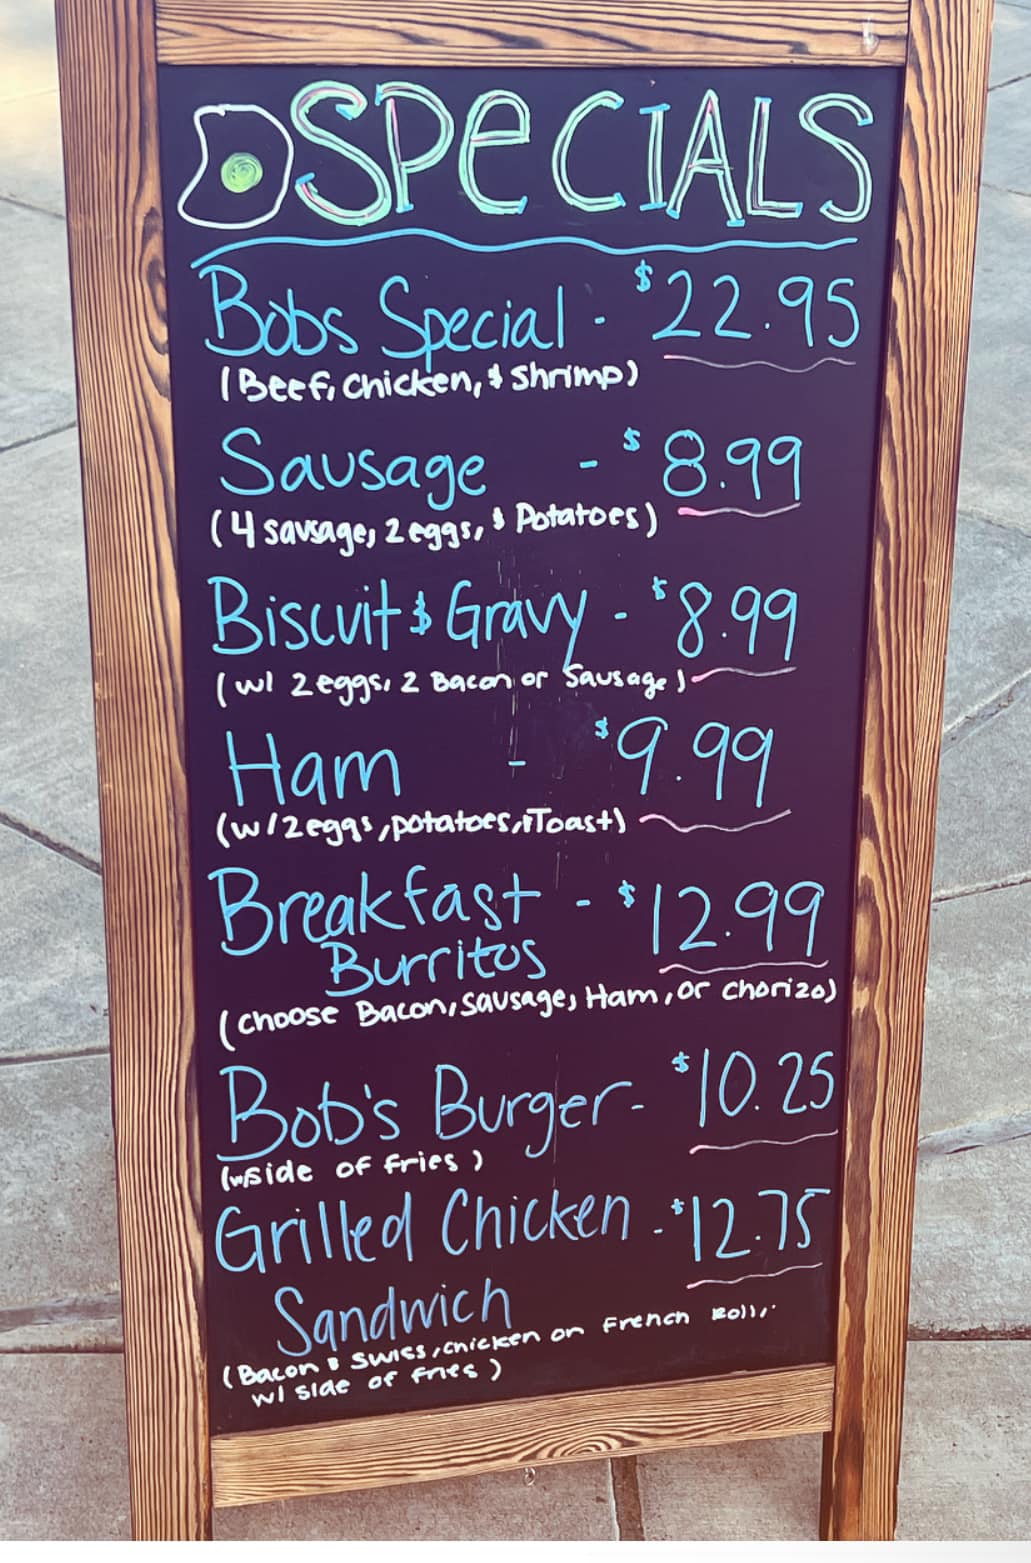 SPeCIALS
Bobs Special - $22.95
(Beef, chicken, & Shrimp)
Sausage - $8.99
(4 sausage, 2 eggs, & Potatoes)
Biscuit & Gravy - $8.99
(w/ 2 eggs, 2 Bacon or Sausage)
Ham - $9.99
(w/ 2 eggs, potatoes, & Toast)
Breakfast - $12.99
Burritos
(choose Bacon, sausage, Ham, or chorizo)
Bob's Burger - $10.25
(w/ side of fries)
Grilled Chicken - $12.75
Sandwich
(Bacon & Swiss, chicken on French Roll,
w/ side of fries)